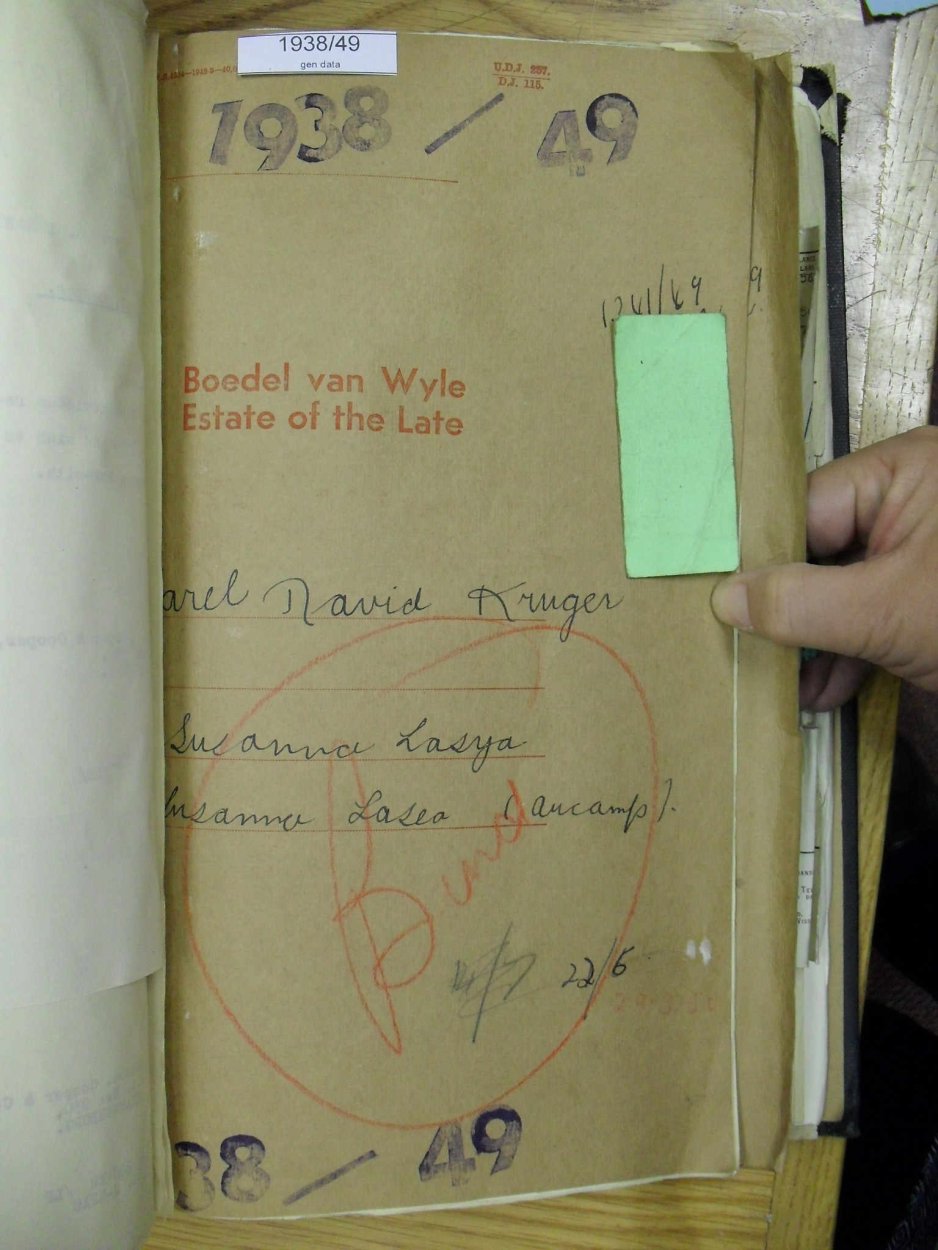 1938/49
gen data
U.D.J. 257.
D.J. 115.
1938 / 49
Boedel van Wyle
Estate of the Late
arel David Kruger
Susanna Lasya
usanna Lasea (Aucamp).
Bund
22/6
38 / 49